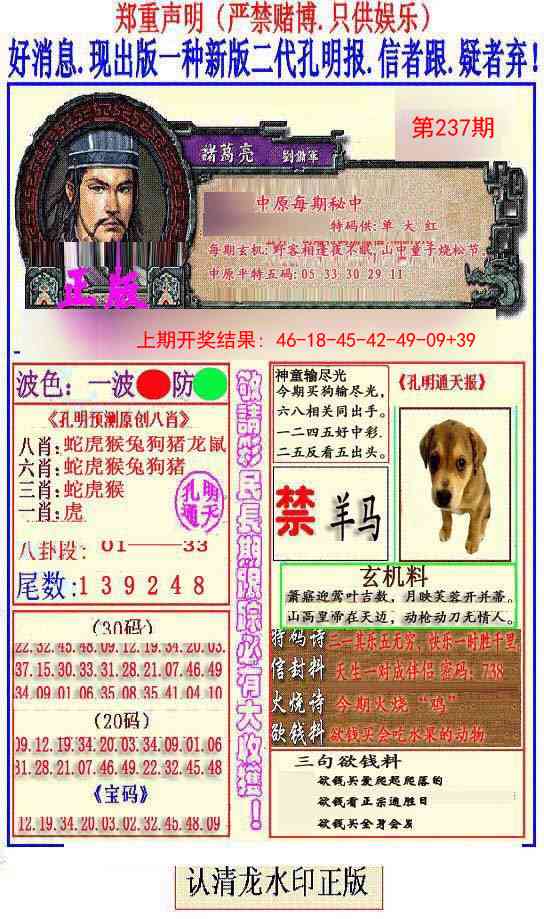 郑重声明（严禁赌博.只供娱乐）
好消息.现出版一种新版二代孔明报.信者跟.疑者弃!
第237期
諸葛亮
劉備軍
中原每期秘中
特码供:单大红
每期玄机:野客相逢夜不眠,山中童子烧松节.
中原平特五码:05 33 30 29 11
正版
上期开奖结果: 46-18-45-42-49-09+39
波色: 一波 防
《孔明预测原创八肖》
八肖:蛇虎猴兔狗猪龙鼠
六肖:蛇虎猴兔狗猪
三肖:蛇虎猴
一肖:虎
孔明
通天
八卦段: 01——33
尾数:139248
(30码)
22.32.45.48.09.12.19.34.20.03.
37.15.30.33.31.28.21.07.46.49
34.09.01.06.35.08.35.41.04.10
(20码)
09.12.19.34.20.03.34.09.01.06
31.28.21.07.46.49.22.32.45.48
《宝码》
12.19.34.20.03.02.32.45.48.09
敬請彩民長期跟踪必有大收獲！
神童输尽光
今期买狗输尽光,
六八相关同出手。
一二四五好中彩.
二五反看五出头。
《孔明通天报》
禁 羊马
玄机料
箫寂迎莺叶吉数，月映芙蓉开并蒂。
山高皇帝在天边，动枪动刀无情人。
特码诗 三一其乐五无穷，快乐一时胜千里
信封料 天生一对成伴侣 密码：738
火烧诗 今期火烧“鸡”
欲钱料 欲钱买会吃水果的动物
三句欲钱料
欲钱买爱爬起爬落的
欲钱看正宗通胜日
欲钱买全身会发
认清龙水印正版